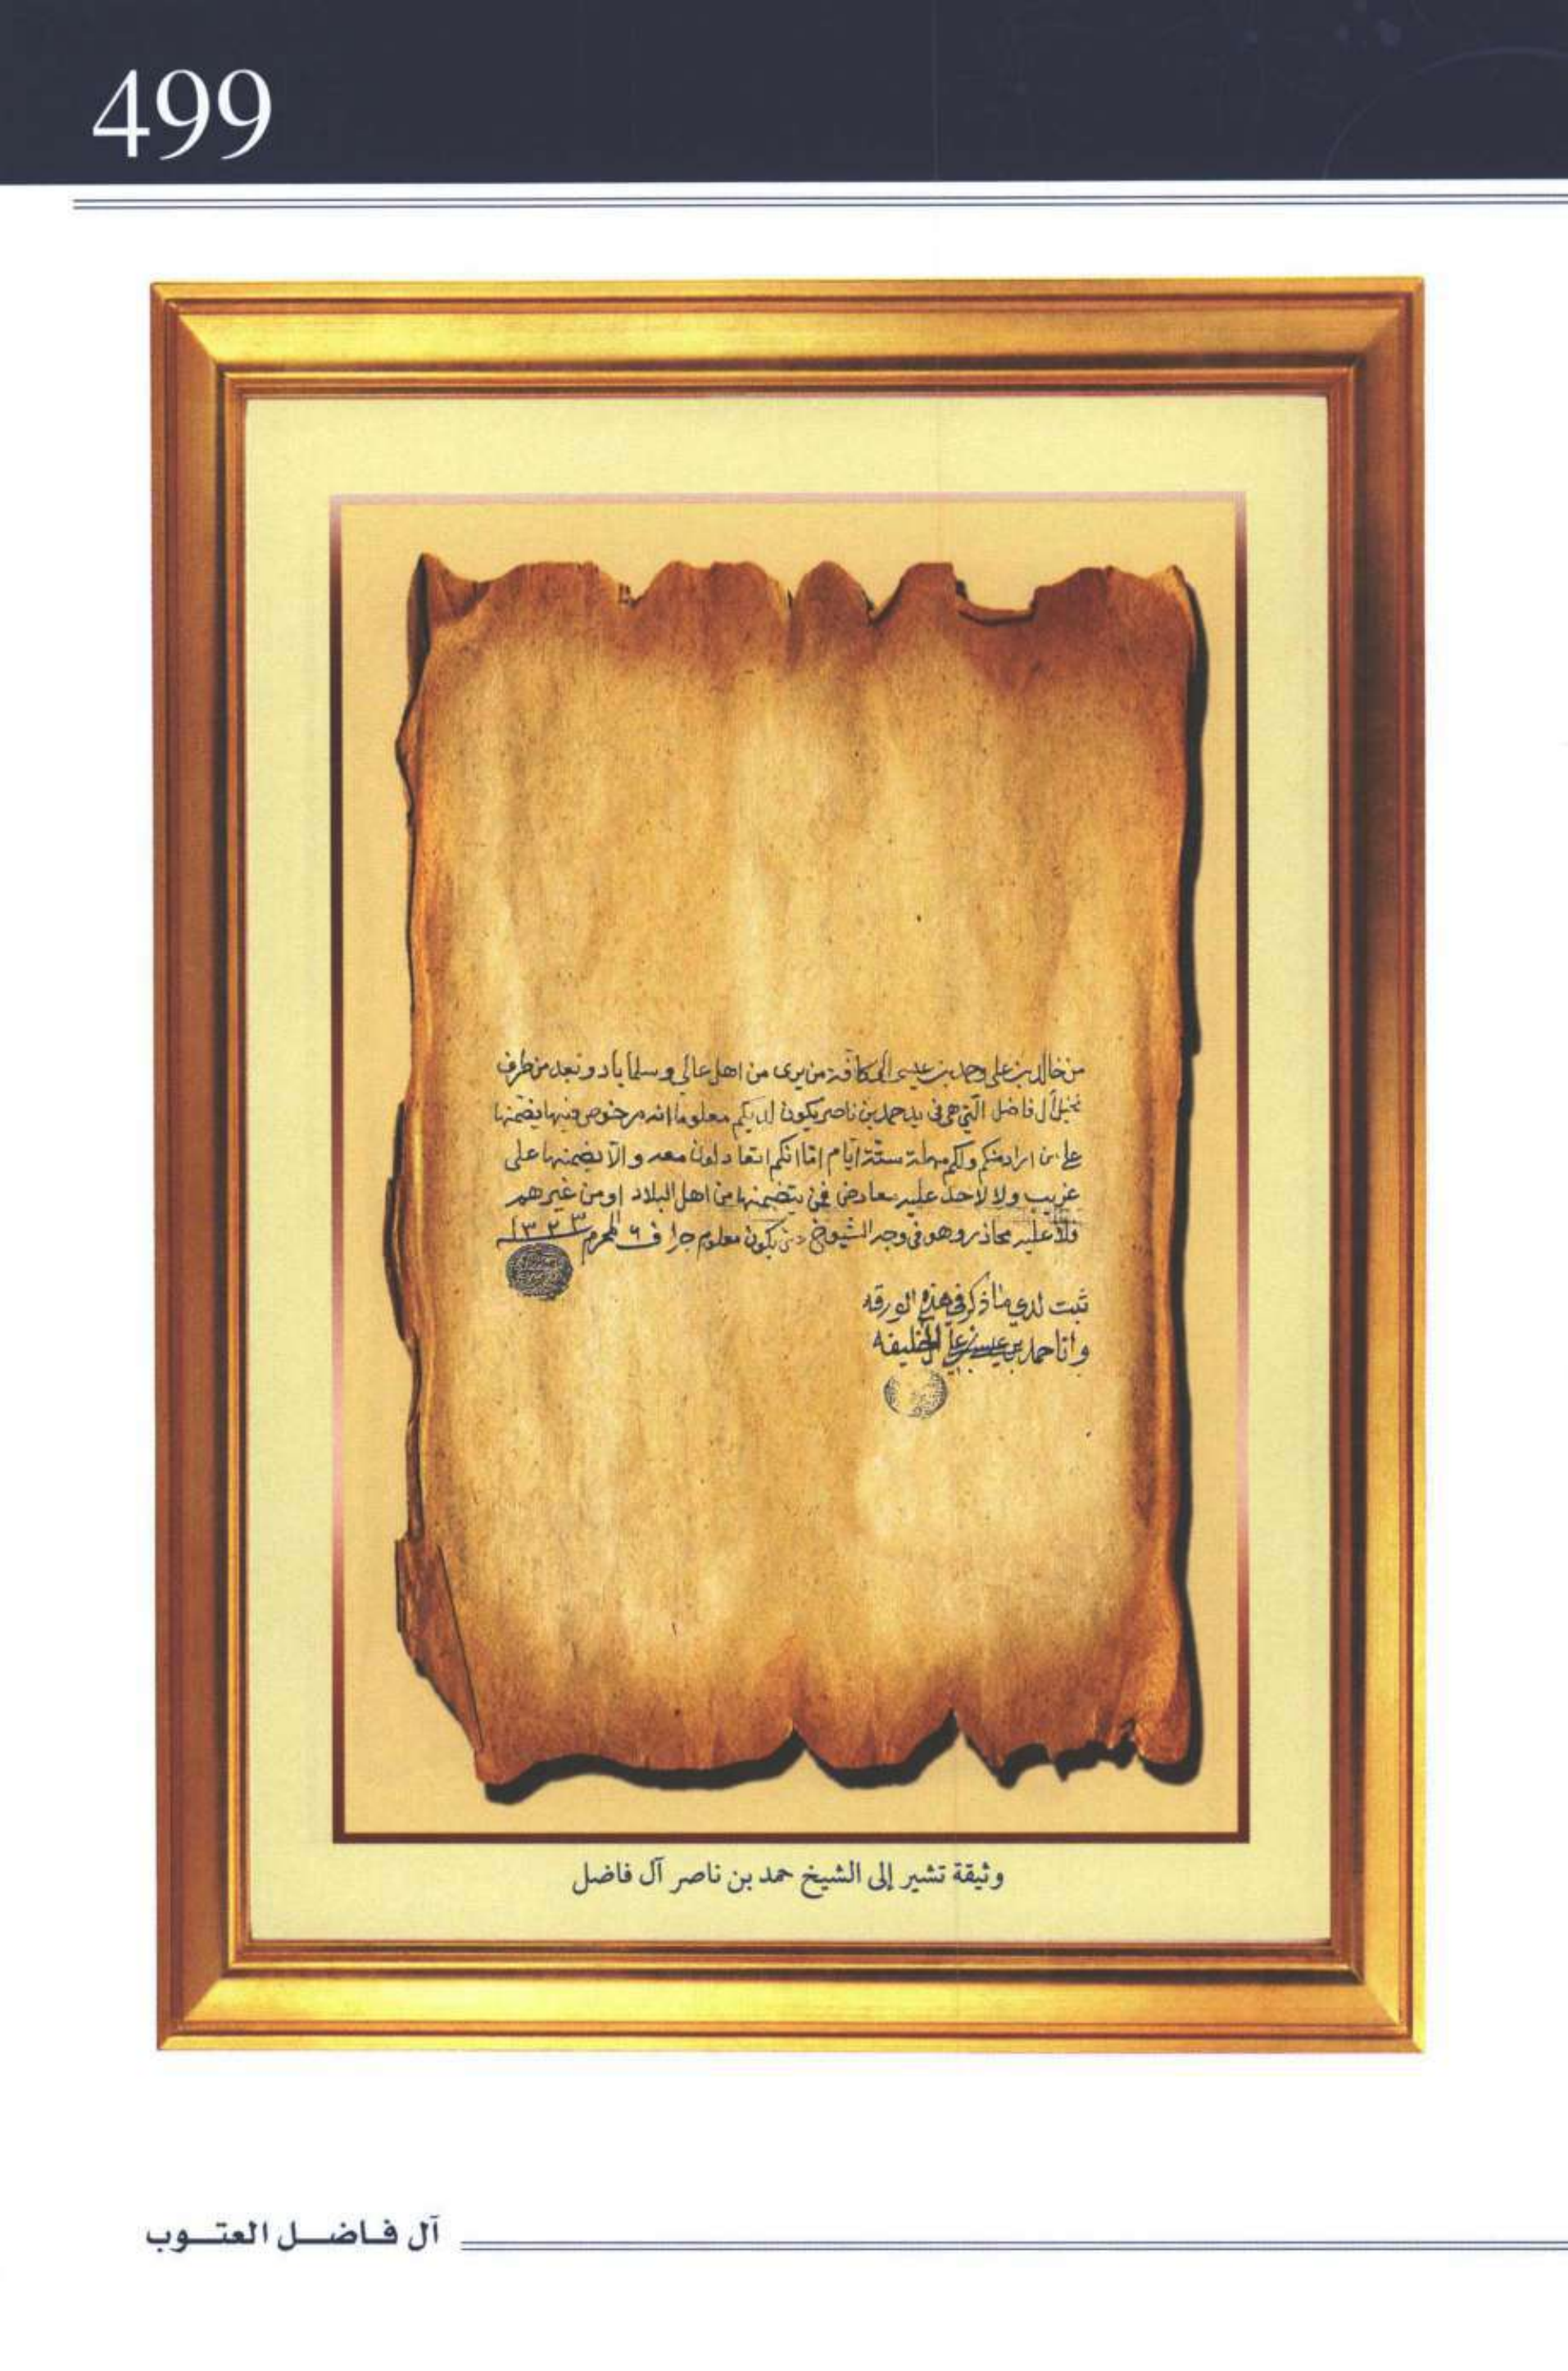 499
من خالد بن علي وحمد بن عيسى الى كافة من يرى من اهل عالي وسلماباد وبعد من طرف
نخيل آل فاضل التي هي في يد حمد بن ناصر يكون لديكم معلوما انه مرخوص فيها يضمنها
على من اراد منكم ولكم مهلة ستة ايام اما انكم اتعادلون معه والا يضمنها على
غريب ولا لاحد عليه معارض فمن يتضمنها من اهل البلاد او من غيرهم
فلا عليه محاذر وهو في وجه الشيوخ يكون معلوم جرا في ٦ المحرم ١٣٢٣
ثبت لدي ما ذكر في هذه الورقه
وانا حمد بن عيسى بن علي الخليفه
وثيقة تشير إلى الشيخ حمد بن ناصر آل فاضل
آل فاضل العتوب